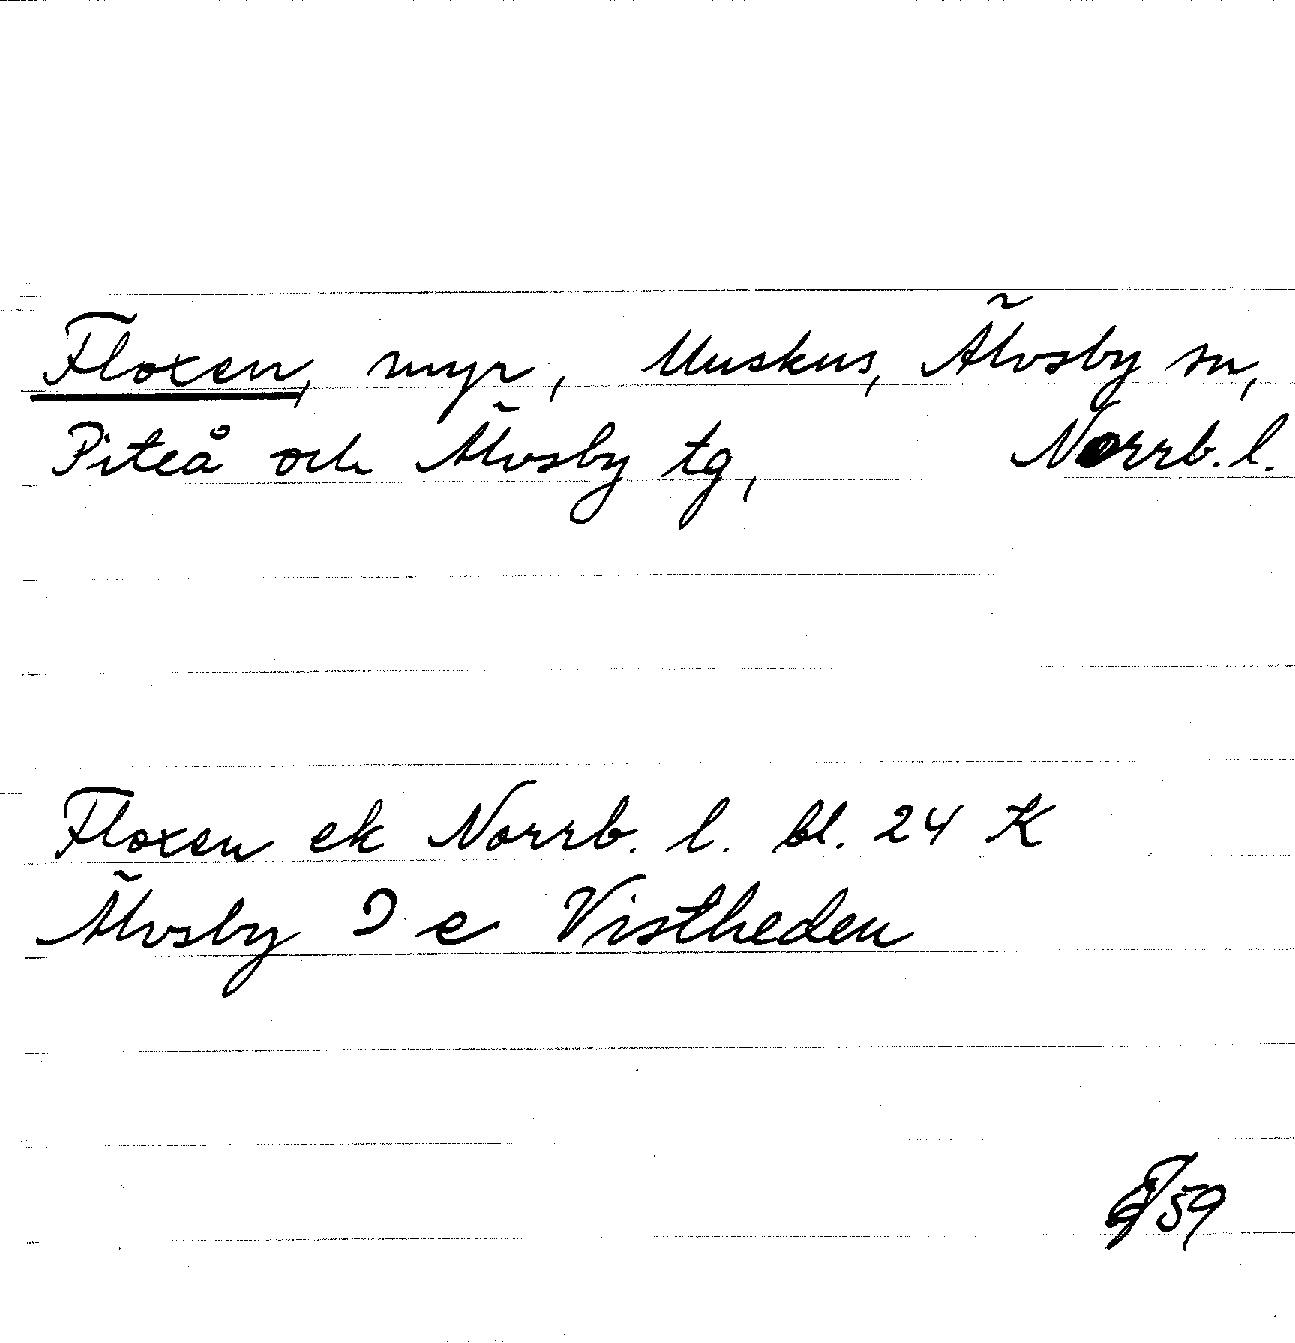 Floxen, myr, Muskus, Älvsby sn,
Piteå och Älvsby tg, Norrb. l.
Floxen ek Norrb. l. bl. 24 K
Älvsby 9 e Vistheden
59